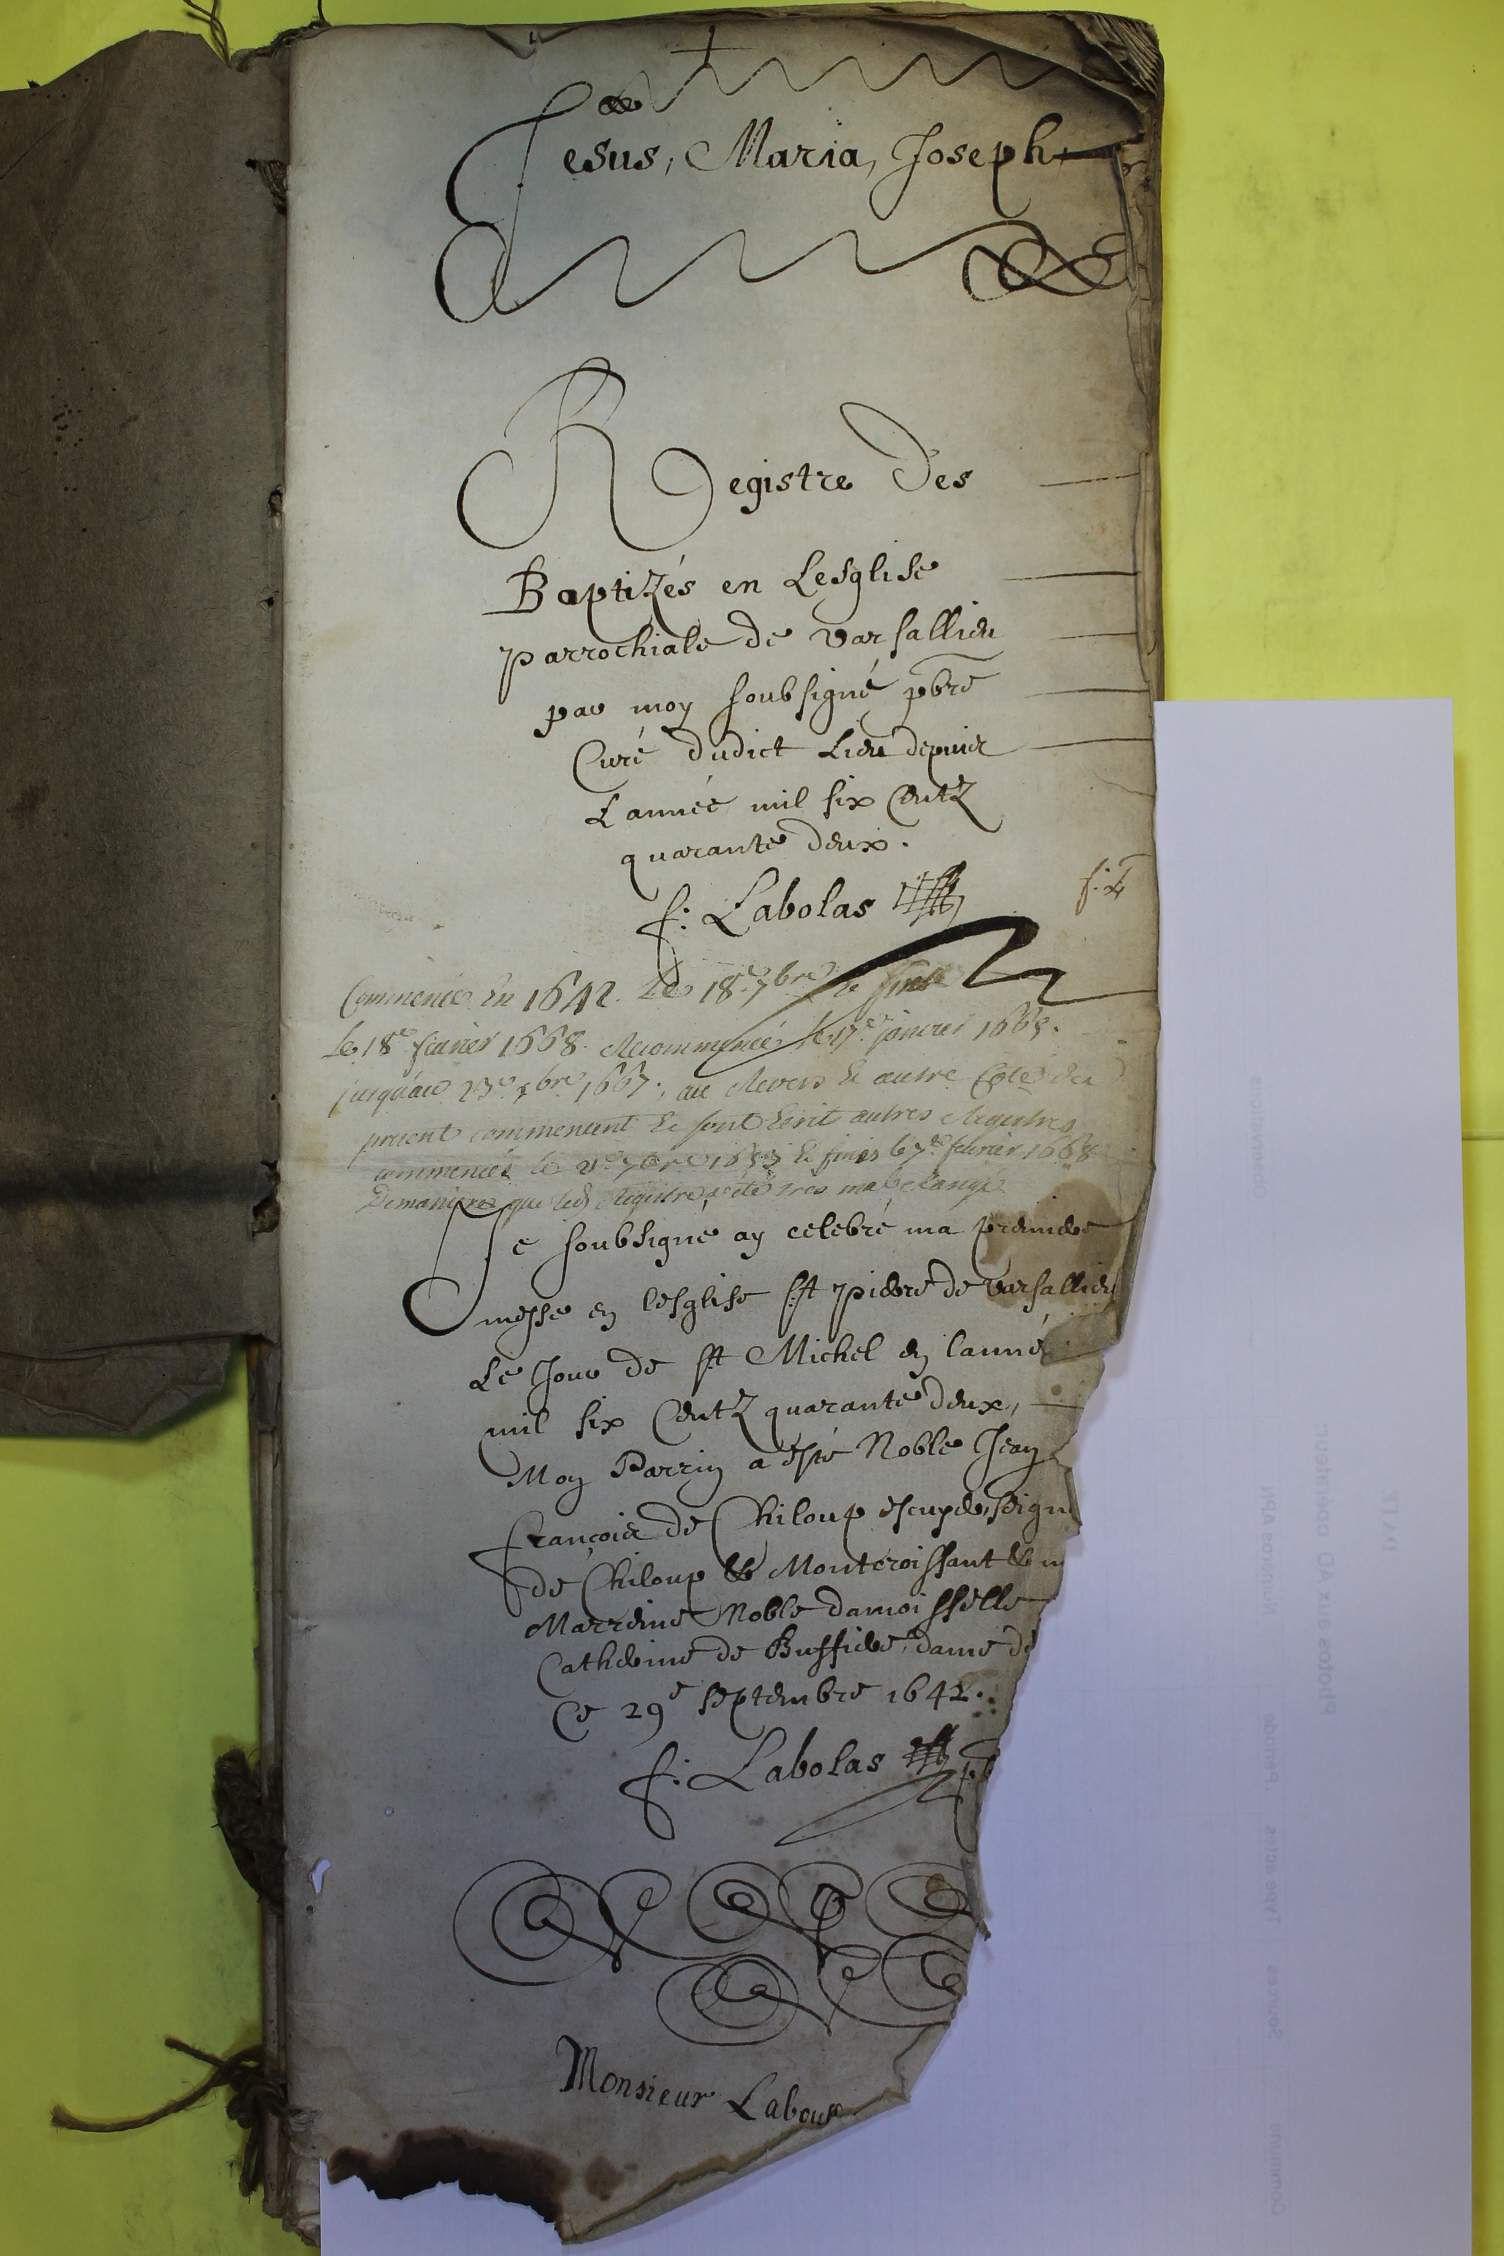 Jesus, Maria, Joseph
Registre des
Baptizés en Lesglise
parrochiale de varsallieu
par moy soubsigné pbre
Curé dudict Lieu depuis
L'année mil six Centz
quarante deux.
f: Labolas
Commencé en 1642. Le 18e 7bre
le 18e fevrier 1668. Recommencé le 17e janvier 1665.
jusqu'au 23e 1667, au Revers & autre Coté du
present commencent & sont Ecrit autres Registres
commencés le 1653 & finis le 7e fevrier 1668
De maniere que led. Registre a eté tres mal Rangé
Je soubsigné ay celebré ma premiere
messe en lesglise st pierre de varsallieu
Le Jour de st Michel en l'année
mil six Centz quarante deux,
Moy Parrin a esté Noble Jean
françois de Chiloup escuyer, seign
de Chiloup & Montcroissant & m
Marreine Noble damoisselle
Catherine de Buffiere, dame de
Ce 29e septembre 1642.
f: Labolas
Monsieur Labou